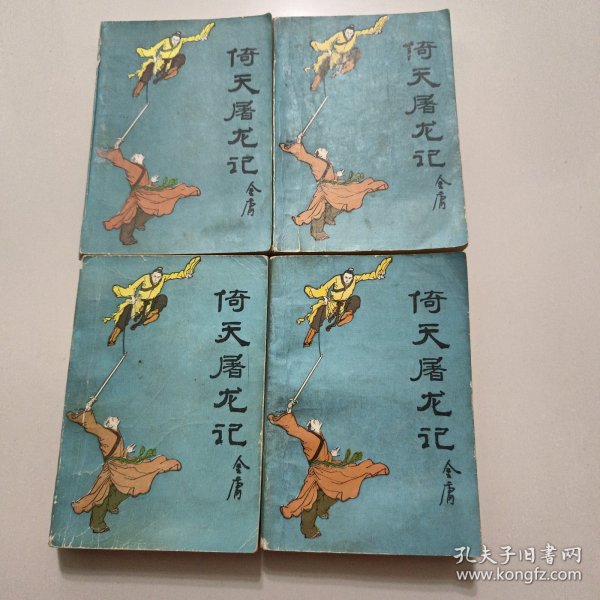 倚天屠龙记
金庸
倚天屠龙记
金庸
倚天屠龙记
金庸
倚天屠龙记
金庸
孔夫子旧书网
www.kongfz.com